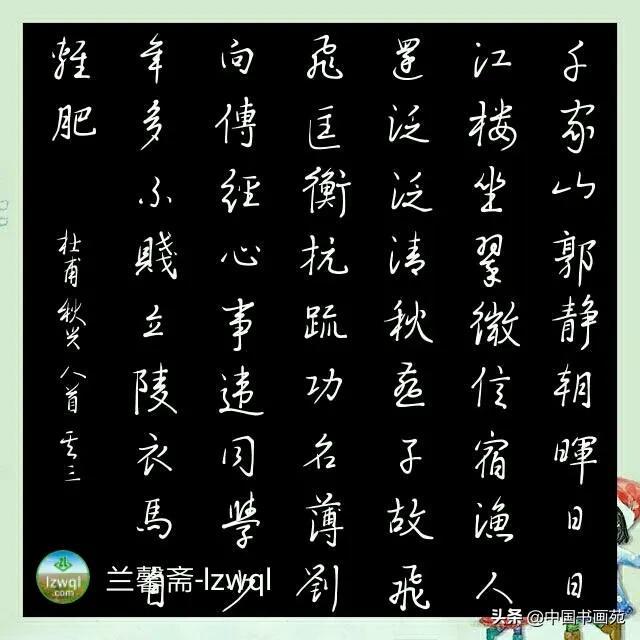 千家山郭静朝暉日日
江楼坐翠微信宿漁人
還泛泛清秋燕子故飛
飛匡衡抗疏功名薄劉
向傳經心事違同學少
年多不賤五陵衣馬自
輕肥
杜甫秋兴八首其三
兰馨斋-lzwql
lzwql
.com
头条 @中国书画苑